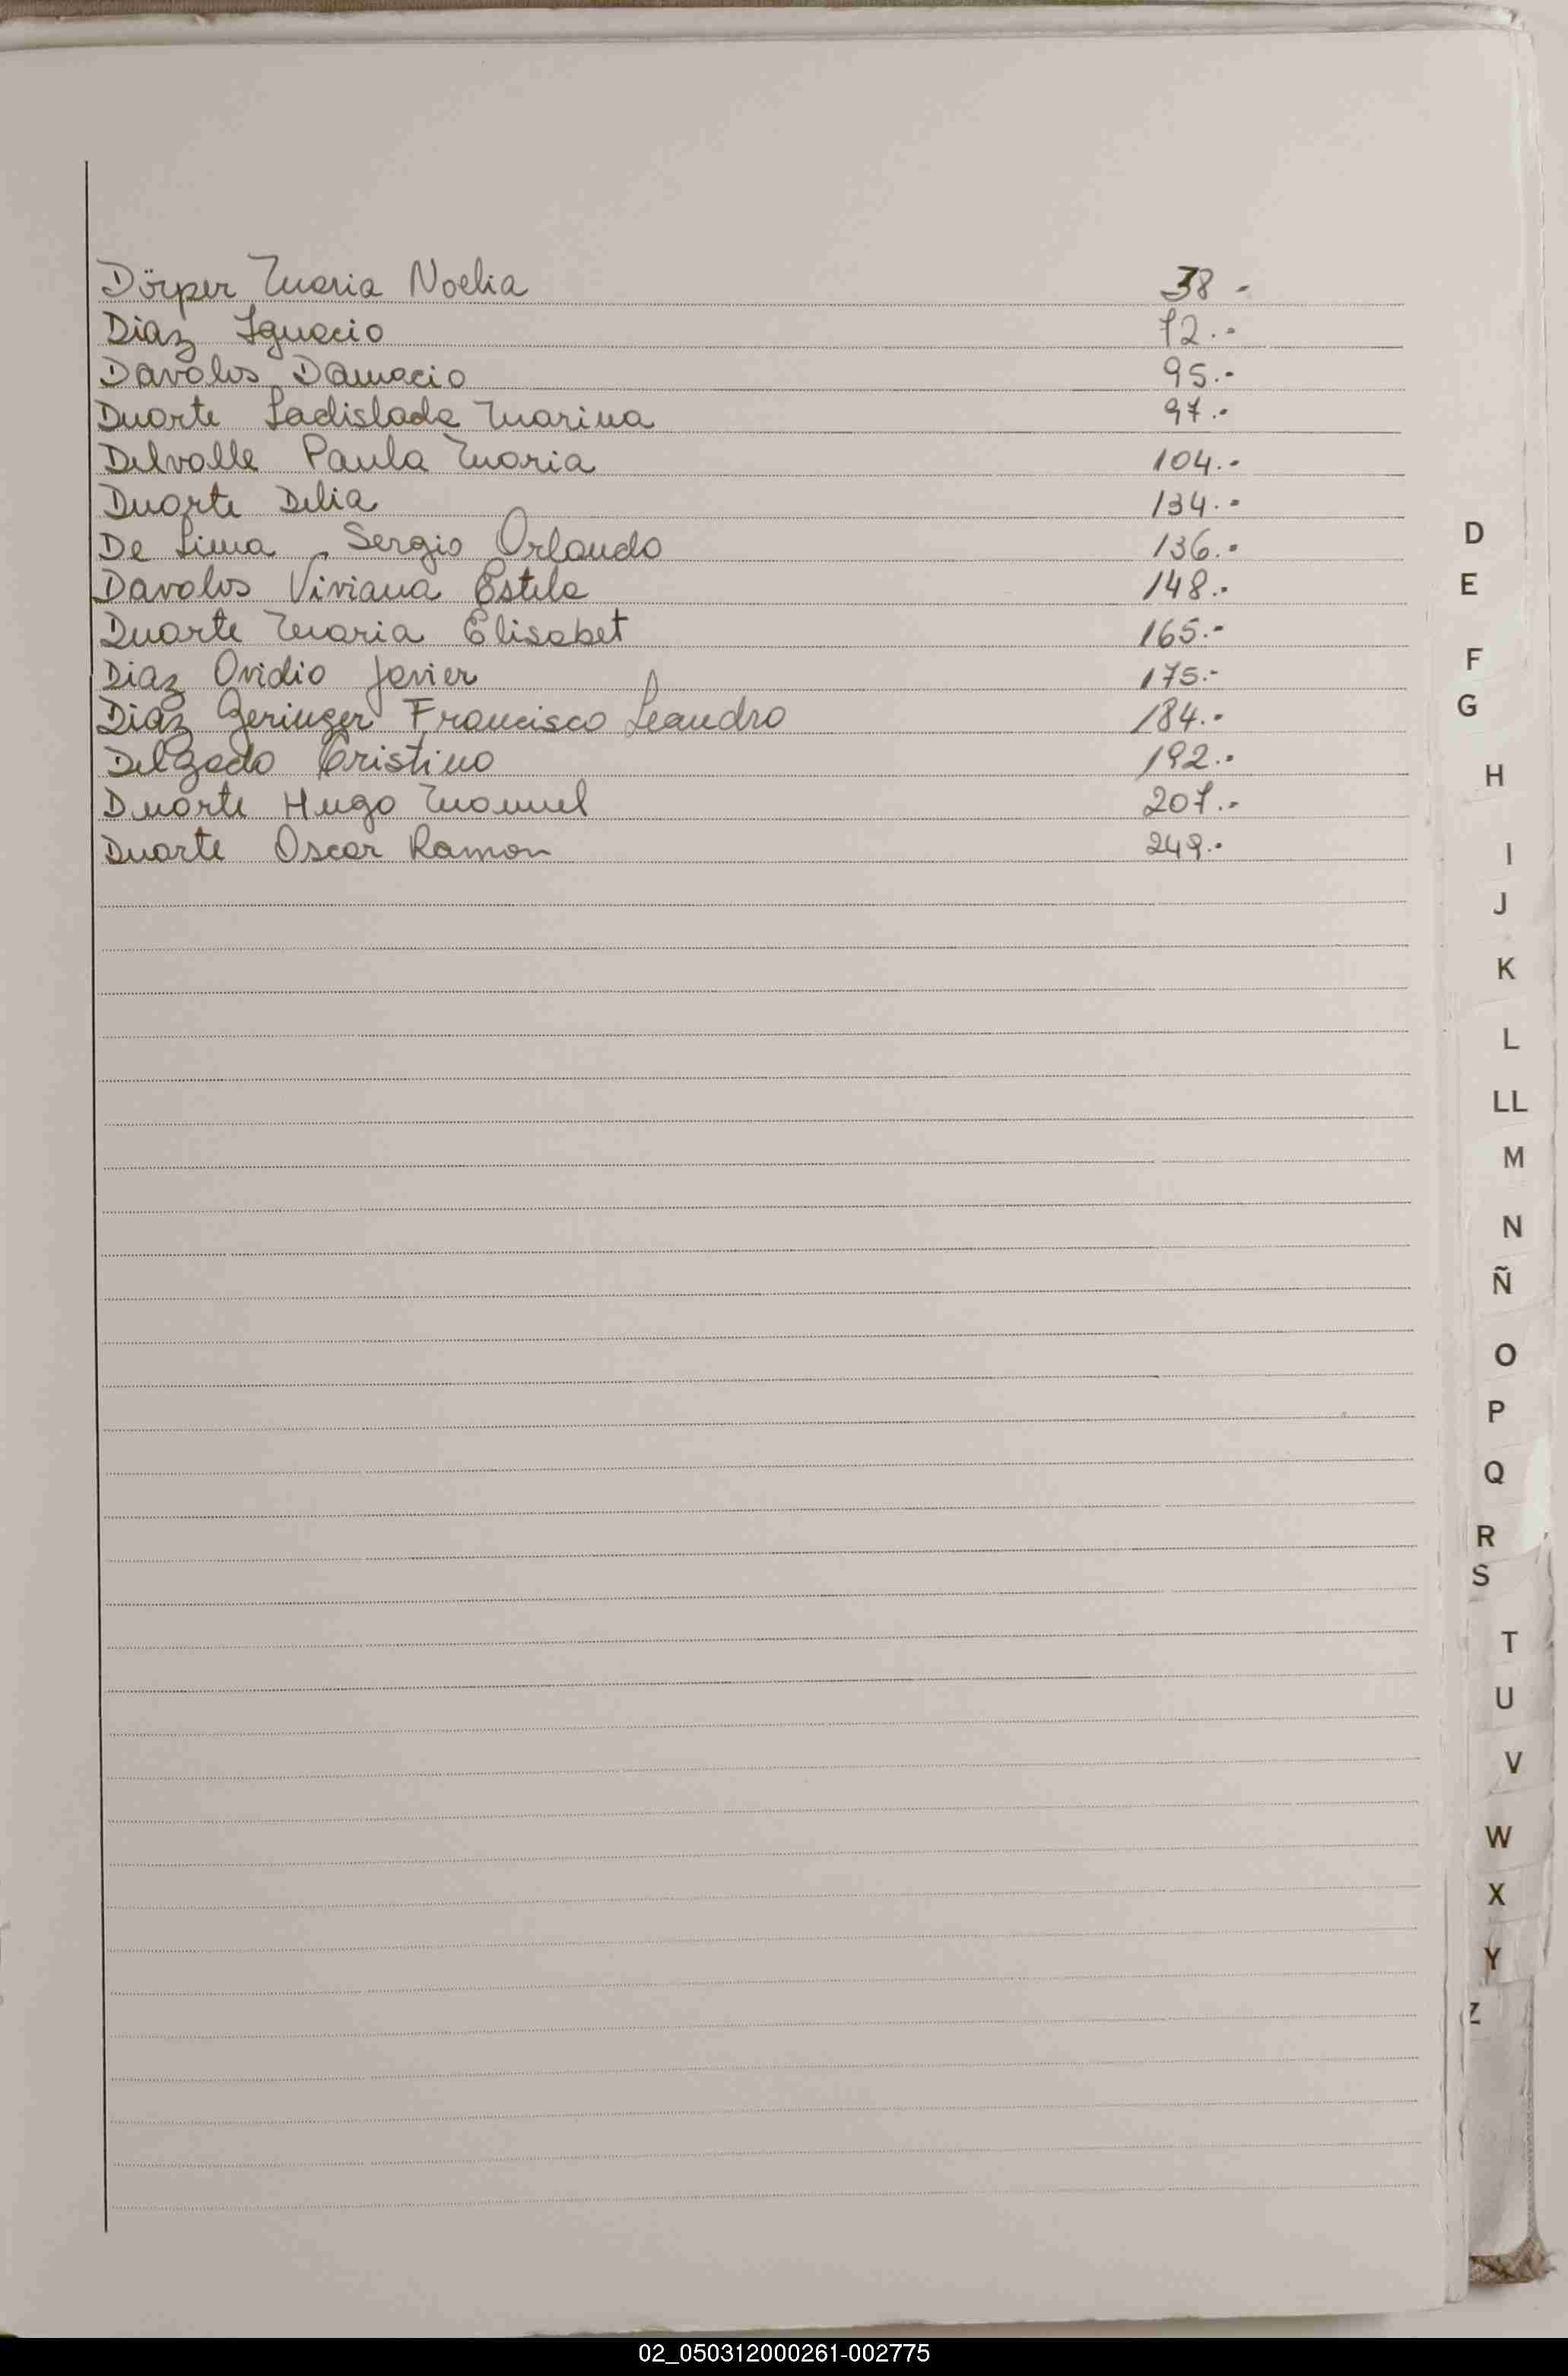 Dörper Maria Noelia 38.-
Diaz Ignacio 72.-
Davalos Damacio 95.-
Duarte Ladislada Marina 97.-
Delvalle Paula Maria 104.-
Duarte Delia 134.-
De Lima, Sergio Orlando 136.-
Davalos Viviana Estela 148.-
Duarte Maria Elisabet 165.-
Diaz Ovidio Javier 175.-
Diaz Geringer Francisco Leandro 184.-
Delgado Cristino 192.-
Duarte Hugo Manuel 207.-
Duarte Oscar Ramon 249.-
D
E
F
G
H
I
J
K
L
LL
M
N
Ñ
O
P
Q
R
S
T
U
V
W
X
Y
Z
02_050312000261-002775